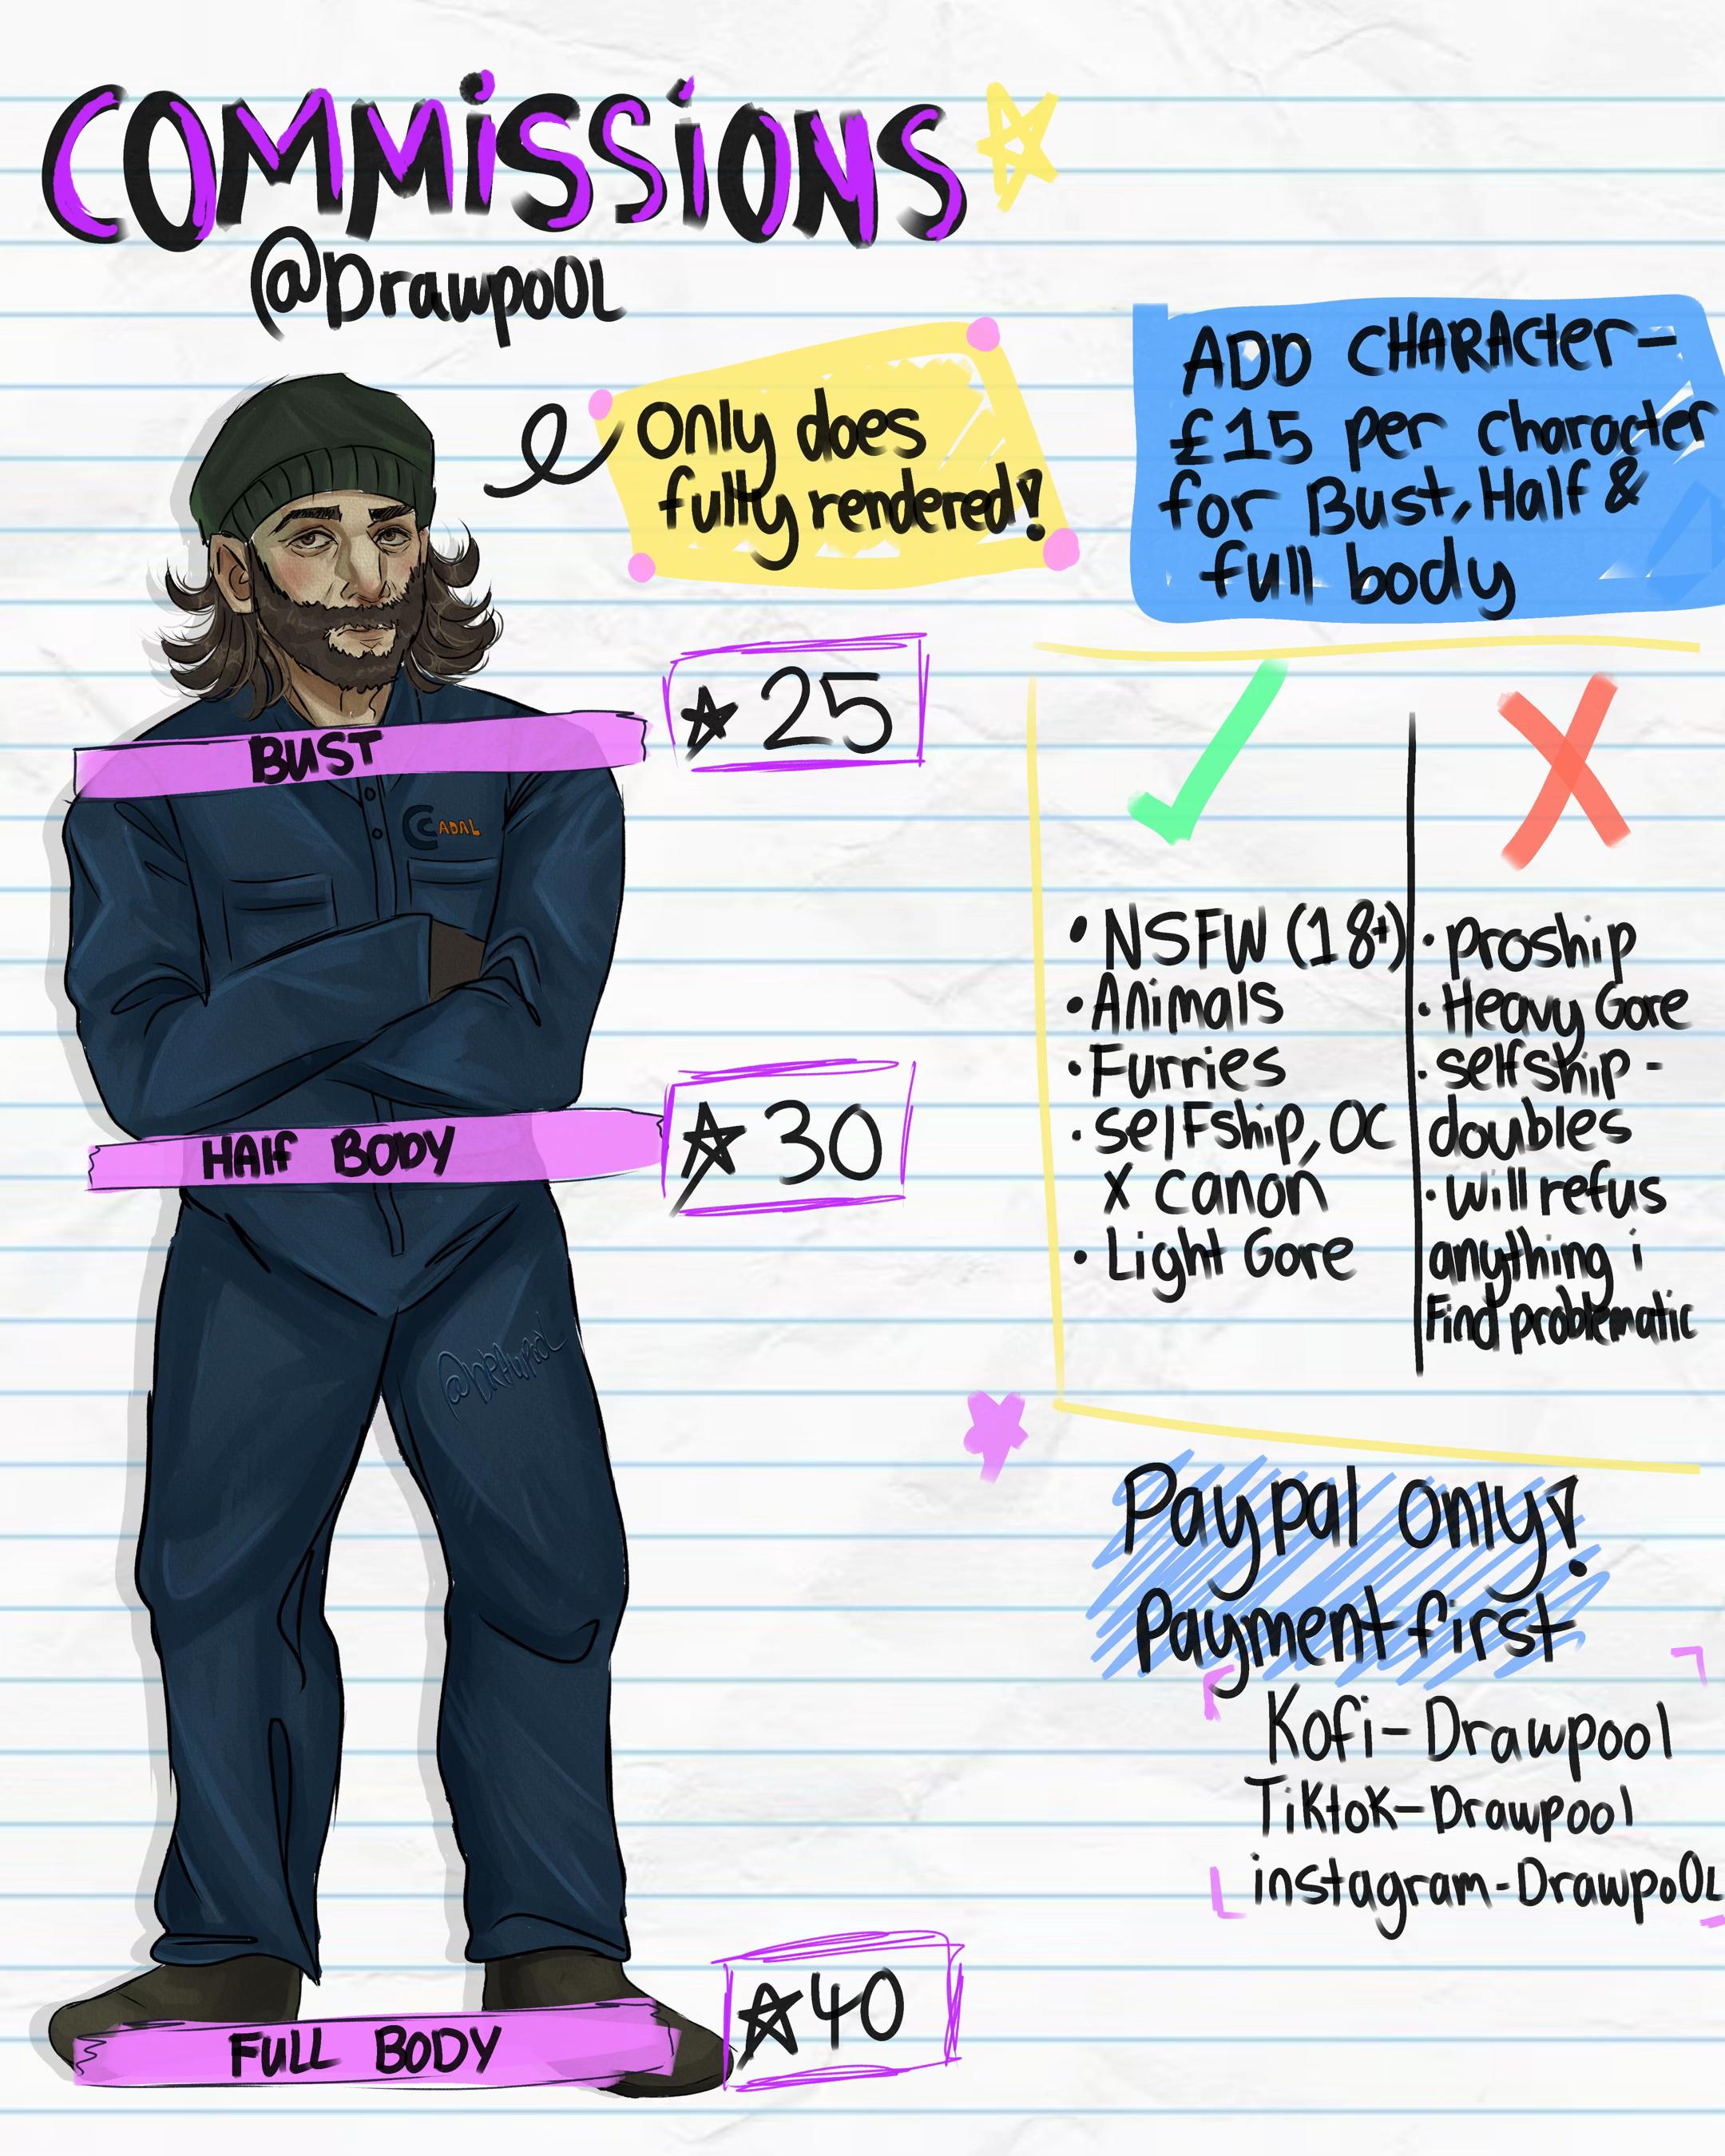 COMMiSSiONS
@DrawpoOL
Only does
fully rendered!
ADD CHARActer-
£15 per character
for Bust, Half &
full body
BUST
25
CADAL
HAlf BODY
30
@DRAWPOOL
FULL BODY
40
• NSFW (18+)
• Animals
• Furries
• selFship, OC
x canon
• Light Gore
• proship
• Heavy Gore
• selfship -
doubles
• will refus
anything i
Find problematic
Paypal only!
Payment first
Kofi- Drawpool
Tiktok- Drawpool
instagram - DrawpoOL